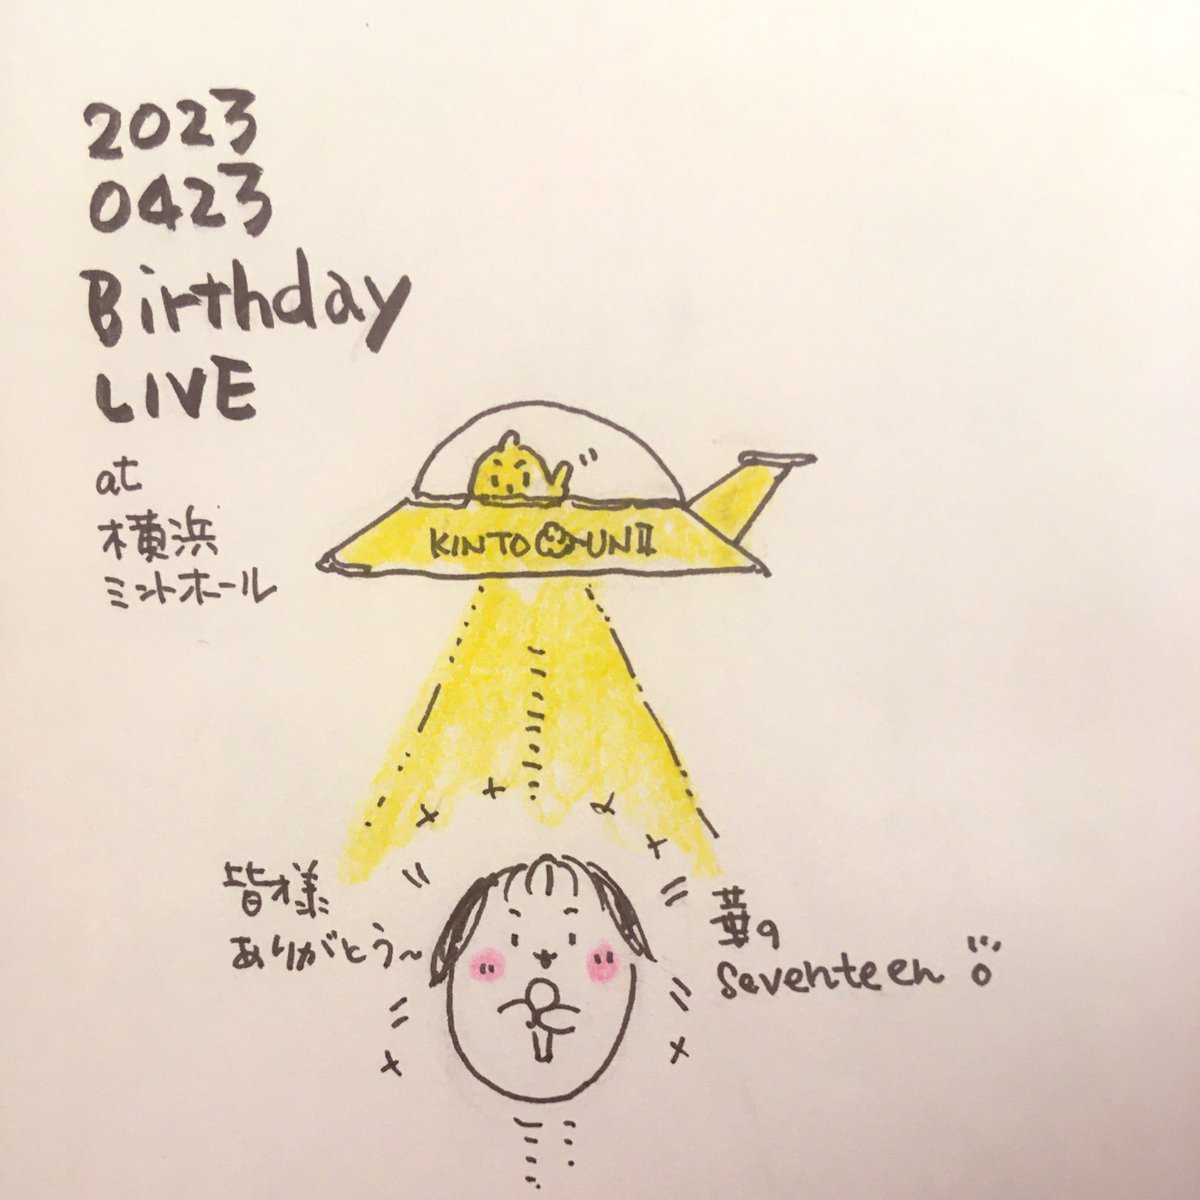 2023
0423
Birthday
LIVE
at
横浜
ミントホール
KINTO UNⅡ
皆様
ありがとう~
華の
seventeen